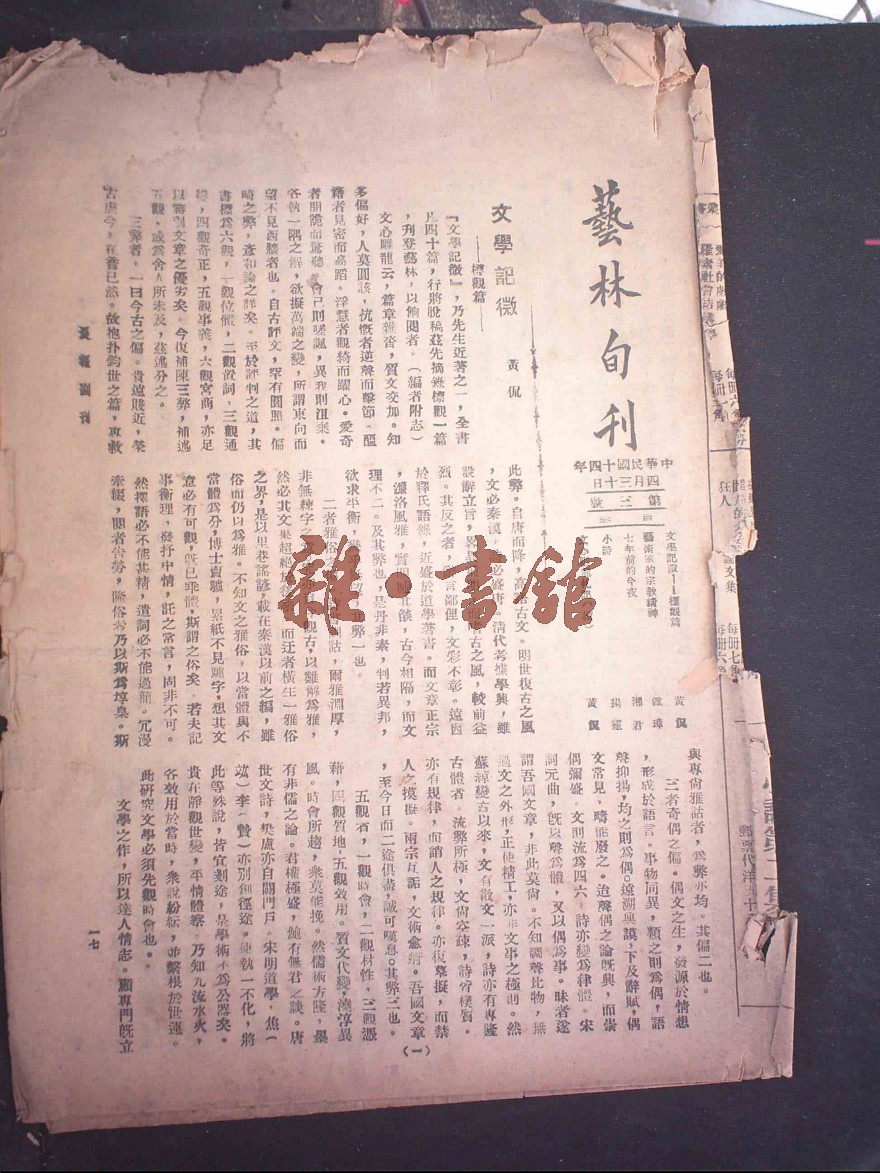 藝林旬刊
中華民國十四年
四月三十日
第三號
文學記微——標觀篇　黃侃
藝術家的宗教精神
七年前的今夜　湘君
小詩　楊
黃侃
文學記微
——標觀篇——
黃侃
『文學記微』,乃先生近著之一,全書
凡四十篇,行將脫稿茲先摘錄標觀一篇
,刋登藝林,以餉閱者。(編者附志)
文心雕龍云,篇章雜沓,質文交加。知
多偏好,人莫圓該,慷慨者逆聲而擊節。醞
籍者見密而高蹈。浮慧者觀綺而躍心。愛奇
者聞詭而驚聽。會己則嗟諷,異我則沮棄。
各執一隅之解,欲擬萬端之變,所謂東向而
望不見西牆者也。自古評文,罕有圓照。偏
崎之弊,彥和論之詳矣。至於評判之道,其
書標為六觀,一觀位體,二觀置詞,三觀通
變,四觀奇正,五觀事義,六觀宮商,亦足
以審別文章之優劣矣。今復補陳三弊,補述
五觀,或為舍人所未及,茲述分之。
三弊者,一曰今古之偏。貴遠賤近,榮
古虐今,在昔已然。故抱扑鈞世之篇,專救
此弊。自唐而降,高談古文。明世復古之風
,文必秦漢,詩必盛唐。清代考據學興,雖
設辭立旨,
古之風,較前益
烈。其反之者,
言鄙俚,文彩不彰。遠因
於釋氏語錄,近盛於道學著書。而文章正宗
,濂洛風雅,實
古今相隔,而文
理不二。及其弊也,是丹非素,判若異邦,
欲求平衡,
弊一也。
二者雅俗
詁,爾雅淵厚,
非無練字之
觀古,以難解為雅,
然必其文果超
而迂者橫生一雅俗
之界,是以里巷謠諺,載在秦漢以前之編,雖
俗而仍以為雅。不知文之雅俗,以當體與不
當體為分,博士賣驢,累紙不見驢字,想其文
意必有可觀,既已乖體,斯謂之俗矣。若夫記
事衡理,發抒中情,託之常言,固非不可。
然擇語必不能其精,遣詞必不能過簡。冗漫
柰綴,閱者告勞,隆俗者乃以斯為埻臬。斯
與專尙雅詁者,為弊亦均。其偏二也。
三者奇偶之偏。偶文之生,發源於情想
,形成於語言。事物同異,類之則為偶,語
聲抑揚,均之則為偶。遠溯典謨,下及辭賦,偶
文常見,疇能廢之。迨聲偶之論既興,而崇
偶彌盛。文則流為四六,詩亦變為律體。宋
詞元曲,既以聲為體,又以偶為事。昧者遂
謂吾國文章,非此莫尙。不知調聲比物,無
過文之外形,正使精工,亦非文事之極則。然
蘇綽變古以來,文有散文一派,詩亦有專隆
古體者。流弊所極,文尙空疎,詩習樸質。
亦有規律,而謂人之規律。亦復摹擬,而禁
人之摸擬。兩宗互詬,文術愈淆。吾國文章
,至今日而二途俱盡,誠可嘆息。其弊三也。
五觀者,一觀時會,二觀材性,三觀憑
藉,四觀質地,五觀效用。質文代變,澆淳異
風。時會所趨,衆莫能挽。然儒術方隆,墨
有非儒之論。君權極盛,鮑有無君之談。唐
世文詩,樊盧亦自闢門戶。宋明道學,焦(
竑)李(贄)亦別創徑途。使執一不化,將
此等殊說,皆宜剗途,是學術不為公器矣。
貴在靜觀世變,平情體察。乃知九流水火,
各效用於當時,衆說紛紜,並繫根於世運。
此硏究文學必須先觀時會也。
文學之作,所以達人情志。顧專門既立
(一)
一七
晨報副刊
雜·書館
狂人
每冊七角
每冊六
郵票代洋